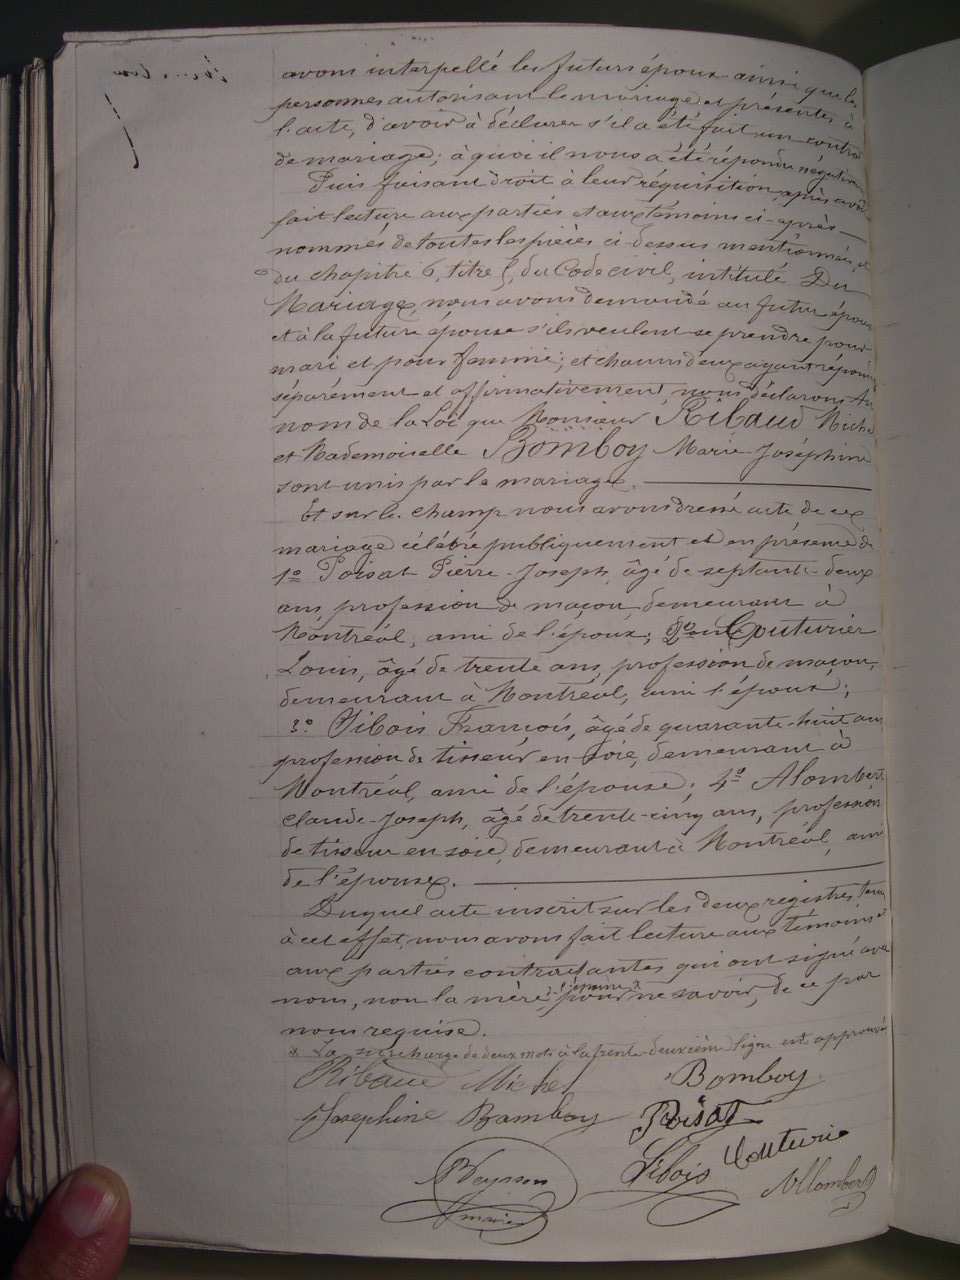 avons interpellé les futurs époux ainsi que les
personnes autorisant le mariage et présentes à
l'acte, d'avoir à déclarer s'il a été fait un contrat
de mariage; à quoi il nous a été répondu négativ
Puis faisant droit à leur réquisition, après avoir
fait lecture aux parties et aux témoins ci-après
nommés de toutes les pièces ci-dessus mentionnées, et
du chapitre 6, titre 5, du Code civil, intitulé Du
Mariage, nous avons demandé au futur époux
et à la future épouse s'ils veulent se prendre pour
mari et pour femme; et chacun d'eux ayant répondu
séparément et affirmativement nous déclarons Au
nom de la Loi que Monsieur Ribaud Michel
et Mademoiselle Bomboy Marie-Joséphine
sont unis par le mariage.
Et sur le champ nous avons dressé acte de ce
mariage célébré publiquement et en présence de
1º Poisat Pierre-Joseph, âgé de septante-deux
ans profession de maçon demeurant à
Montréal, ami de l'époux; 2º Couturier
Louis, âgé de trente ans, profession de maçon,
demeurant à Montréal, ami l'époux;
3º Jibois François, âgé de quarante-huit ans
profession de tisseur en soie, demeurant à
Montréal, ami de l'épouse; 4º Alombert
Claude-Joseph, âgé de trente-cinq ans, profession
de tisseur en soie, demeurant à Montréal, ami
de l'épouse.
Duquel acte inscrit sur les deux registres tenus
à cet effet, nous avons fait lecture aux témoins et
aux parties contractantes qui ont signé avec
nous, non la mère de l'épouse x pour ne savoir, de ce par
nous requise.
x La surcharge de deux mots à la trente-deuxième ligne est approuvée
Ribaud Michel Bomboy
Josephine Bomboy Poisat
Jibois Couturie
Beysson Allombert
maire